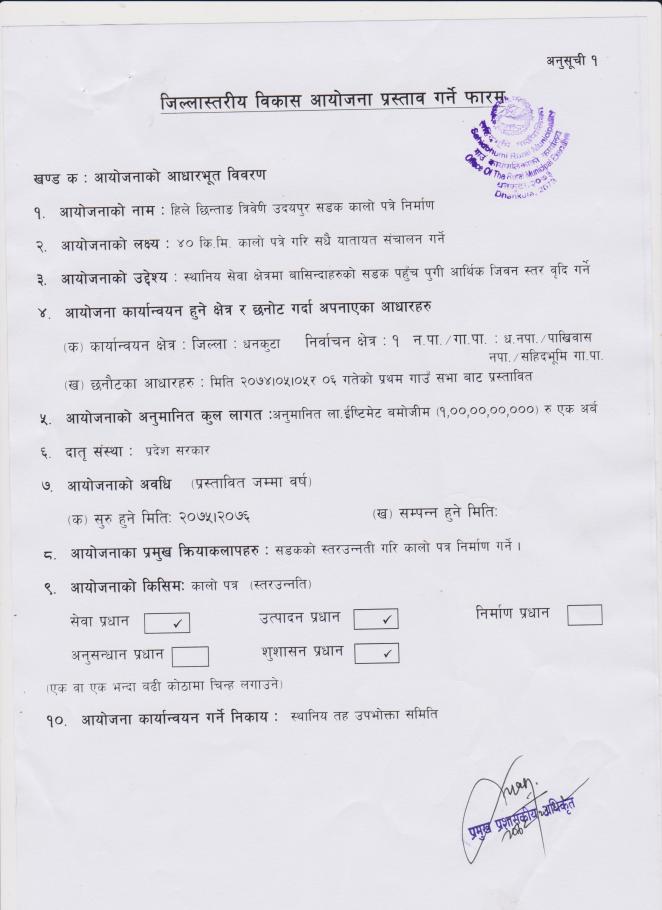 अनुसूची १
जिल्लास्तरीय विकास आयोजना प्रस्ताव गर्ने फारम
Sahidbhumi Rural Municipality
Office Of The Rural Municipal Executive
धनकुटा, २०७३
Dhankuta, 2073
खण्ड क : आयोजनाको आधारभूत विवरण
१. आयोजनाको नाम : हिले छिन्ताङ त्रिवेणी उदयपुर सडक कालो पत्रे निर्माण
२. आयोजनाको लक्ष्य : ४० कि.मि. कालो पत्रे गरि सधै यातायत संचालन गर्ने
३. आयोजनाको उद्देश्य : स्थानिय सेवा क्षेत्रमा बासिन्दाहरुको सडक पहुँच पुगी आर्थिक जिवन स्तर वृदि गर्ने
४. आयोजना कार्यान्वयन हुने क्षेत्र र छनोट गर्दा अपनाएका आधारहरु
(क) कार्यान्वयन क्षेत्र : जिल्ला : धनकुटा निर्वाचन क्षेत्र : १ न.पा./गा.पा. : ध.नपा./पाखिवास
नपा./सहिदभूमि गा.पा.
(ख) छनौटका आधारहरु : मिति २०७४।०५।०५र ०६ गतेको प्रथम गाउँ सभा बाट प्रस्तावित
५. आयोजनाको अनुमानित कुल लागत :अनुमानित ला.ईष्टिमेट बमोजीम (१,००,००,००,०००) रु एक अर्व
६. दातृ संस्था : प्रदेश सरकार
७. आयोजनाको अवधि (प्रस्तावित जम्मा वर्ष)
(क) सुरु हुने मितिः २०७५।२०७६ (ख) सम्पन्न हुने मितिः
८. आयोजनाका प्रमुख क्रियाकलापहरु : सडकको स्तरउन्नती गरि कालो पत्र निर्माण गर्ने ।
९. आयोजनाको किसिमः कालो पत्र (स्तरउन्नति)
सेवा प्रधान ✓ उत्पादन प्रधान ✓ निर्माण प्रधान
अनुसन्धान प्रधान शुशासन प्रधान ✓
(एक वा एक भन्दा वढी कोठामा चिन्ह लगाउने)
१०. आयोजना कार्यान्वयन गर्ने निकाय : स्थानिय तह उपभोक्ता समिति
प्रमुख प्रशासकीय अधिकृत